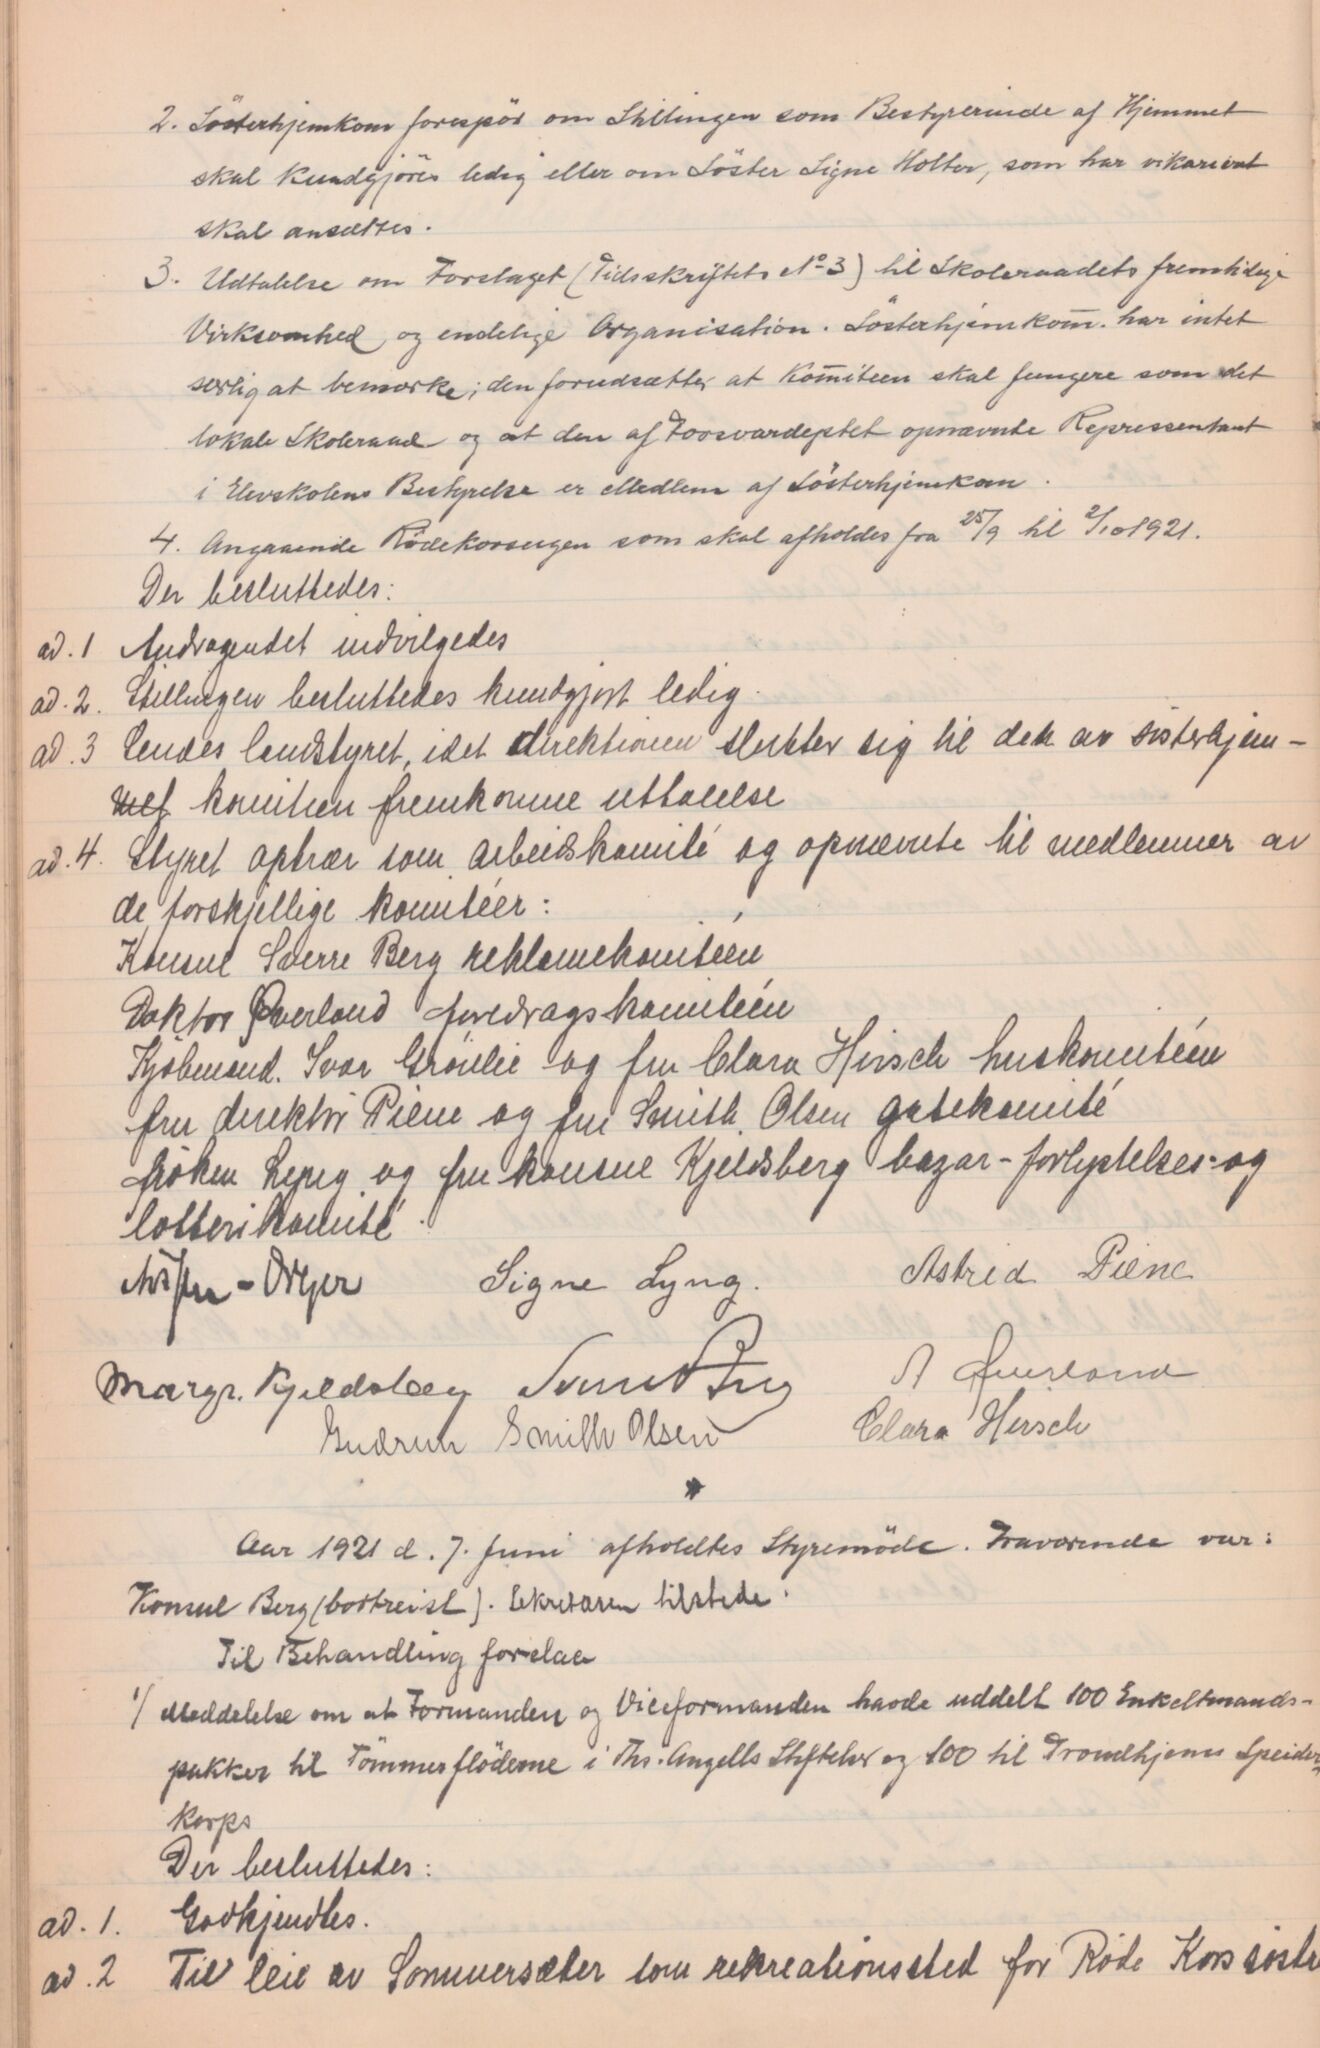 2. Sösterhjemkom forespör om Stillingen som Bestyrerinde af Hjemmet
skal kundgjöres ledig eller om Söster Signe Holter, som har vikarieret
skal ansættes.
3. Udtalelse om Forslaget (Tidsskriftets No 3) til Skoleraadets fremtidige
Virksomhed og endelige Organisation. Söster­hjemkom̄. har intet
særlig at bemærke; den forudsætter at Kom̄iteen skal fungere som det
lokale Skoleraad og at den af Forsvardeptet opnævnte Repressentant
i Elevskolens Bestyrelse er Medlem af Söster­hjemkom.
4. Angaaende Rödekorsugen som skal afholdes fra 25/9 til 2/10 1921.
Der besluttedes:
ad. 1 Andragendet indvilgedes
ad. 2. Stillingen besluttedes kundgjort ledig.
ad. 3 Sendes landstyret, idet direktionen slutter sig til den av søsterhjem-
met komiteen fremkomne uttalelse
ad. 4. Styret optrær som arbeidskomité og opnævnte til medlemmer av
de forskjellige komitéer:
Konsul Sverre Berg reklamekomitéen
Doktor Øverland foredragskomitéen
Kjøbmand. Ivar Grønlie og fru Clara Hirsch huskomitéen
fru direktør Piene og fru Smith Olsen gatekomité
frøken Lyng og fru konsul Kjeldsberg bazar-forlystelses-og
lotterikomité.
Signe Lyng. Astrid Piene
Margr. Kjeldsberg Sverre Berg A Øverland
Gudrun Smith Olsen Clara Hirsch
Aar 1921 d. 7. Juni afholdtes Styremöde. Fraværende var:
Konsul Berg (bortreist). Sekretæren tilstede.
Til Behandling forelaa
1/ Meddelelse om at Formanden og Viceformanden havde uddelt 100 Enkeltmands-
pakker til Tömmerflöderne i Ths. Angells Stiftelser og 100 til Trondhjems Speider-
korps
Der besluttedes:
ad. 1. Godkjendtes.
ad. 2 Til leie av Sommersæter som rekreationssted for Røde Kors søstr